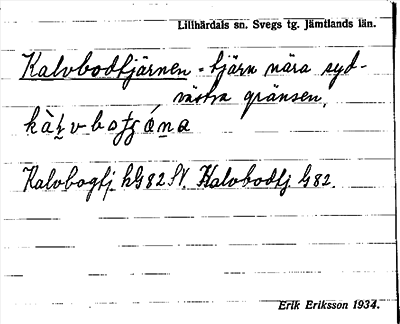 Lillhärdals sn. Svegs tg. Jämtlands län.
Kalvbodtjärnen - tjärn nära syd-
västra gränsen.
Kalvbogtj hG82SV. Kalvbodtj. G82.
Erik Eriksson 1934.